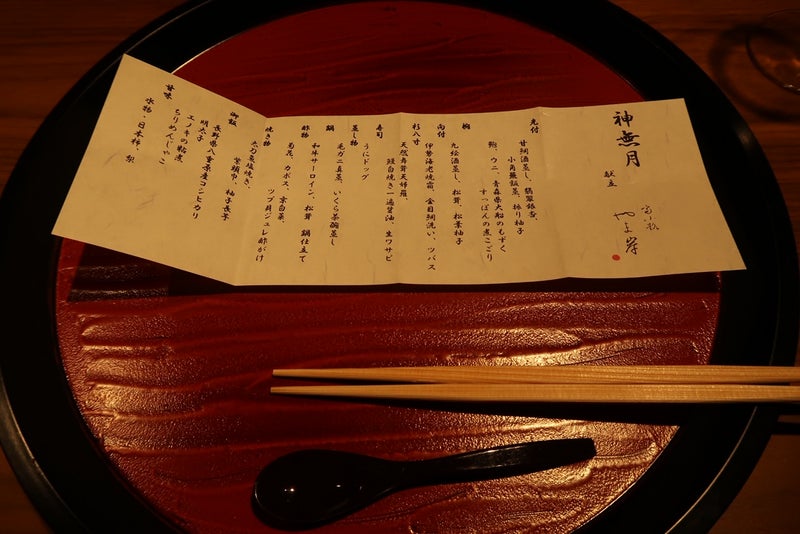 神無月
献立
富小路
やま岸
先付
甘鯛酒蒸し、翡翠銀杏、
小角蓮飯蒸、振り柚子
鮑、ウニ、青森県大船のもずく
すっぽんの煮こごり
椀
九絵酒蒸し、松茸、松葉柚子
向付
伊勢海老焼霜、金目鯛洗い、ツバス
杉八寸
天然舞茸天婦羅、
鰻白焼き一遍醤油、生ワサビ
寿司
うにドッグ
蒸し物
毛ガニ真蒸、いくら茶碗蒸し
鍋
和牛サーロイン、松茸、鍋仕立て
酢物
菊花、カボス、京白菜、
ツブ貝ジュレ酢がけ
焼き物
太刀魚塩焼き、
御飯
長野県八重原産コンヒカリ
明太子
エノキの粘煮
ちりめんじゃこ
甘味
水物・日本柿、梨